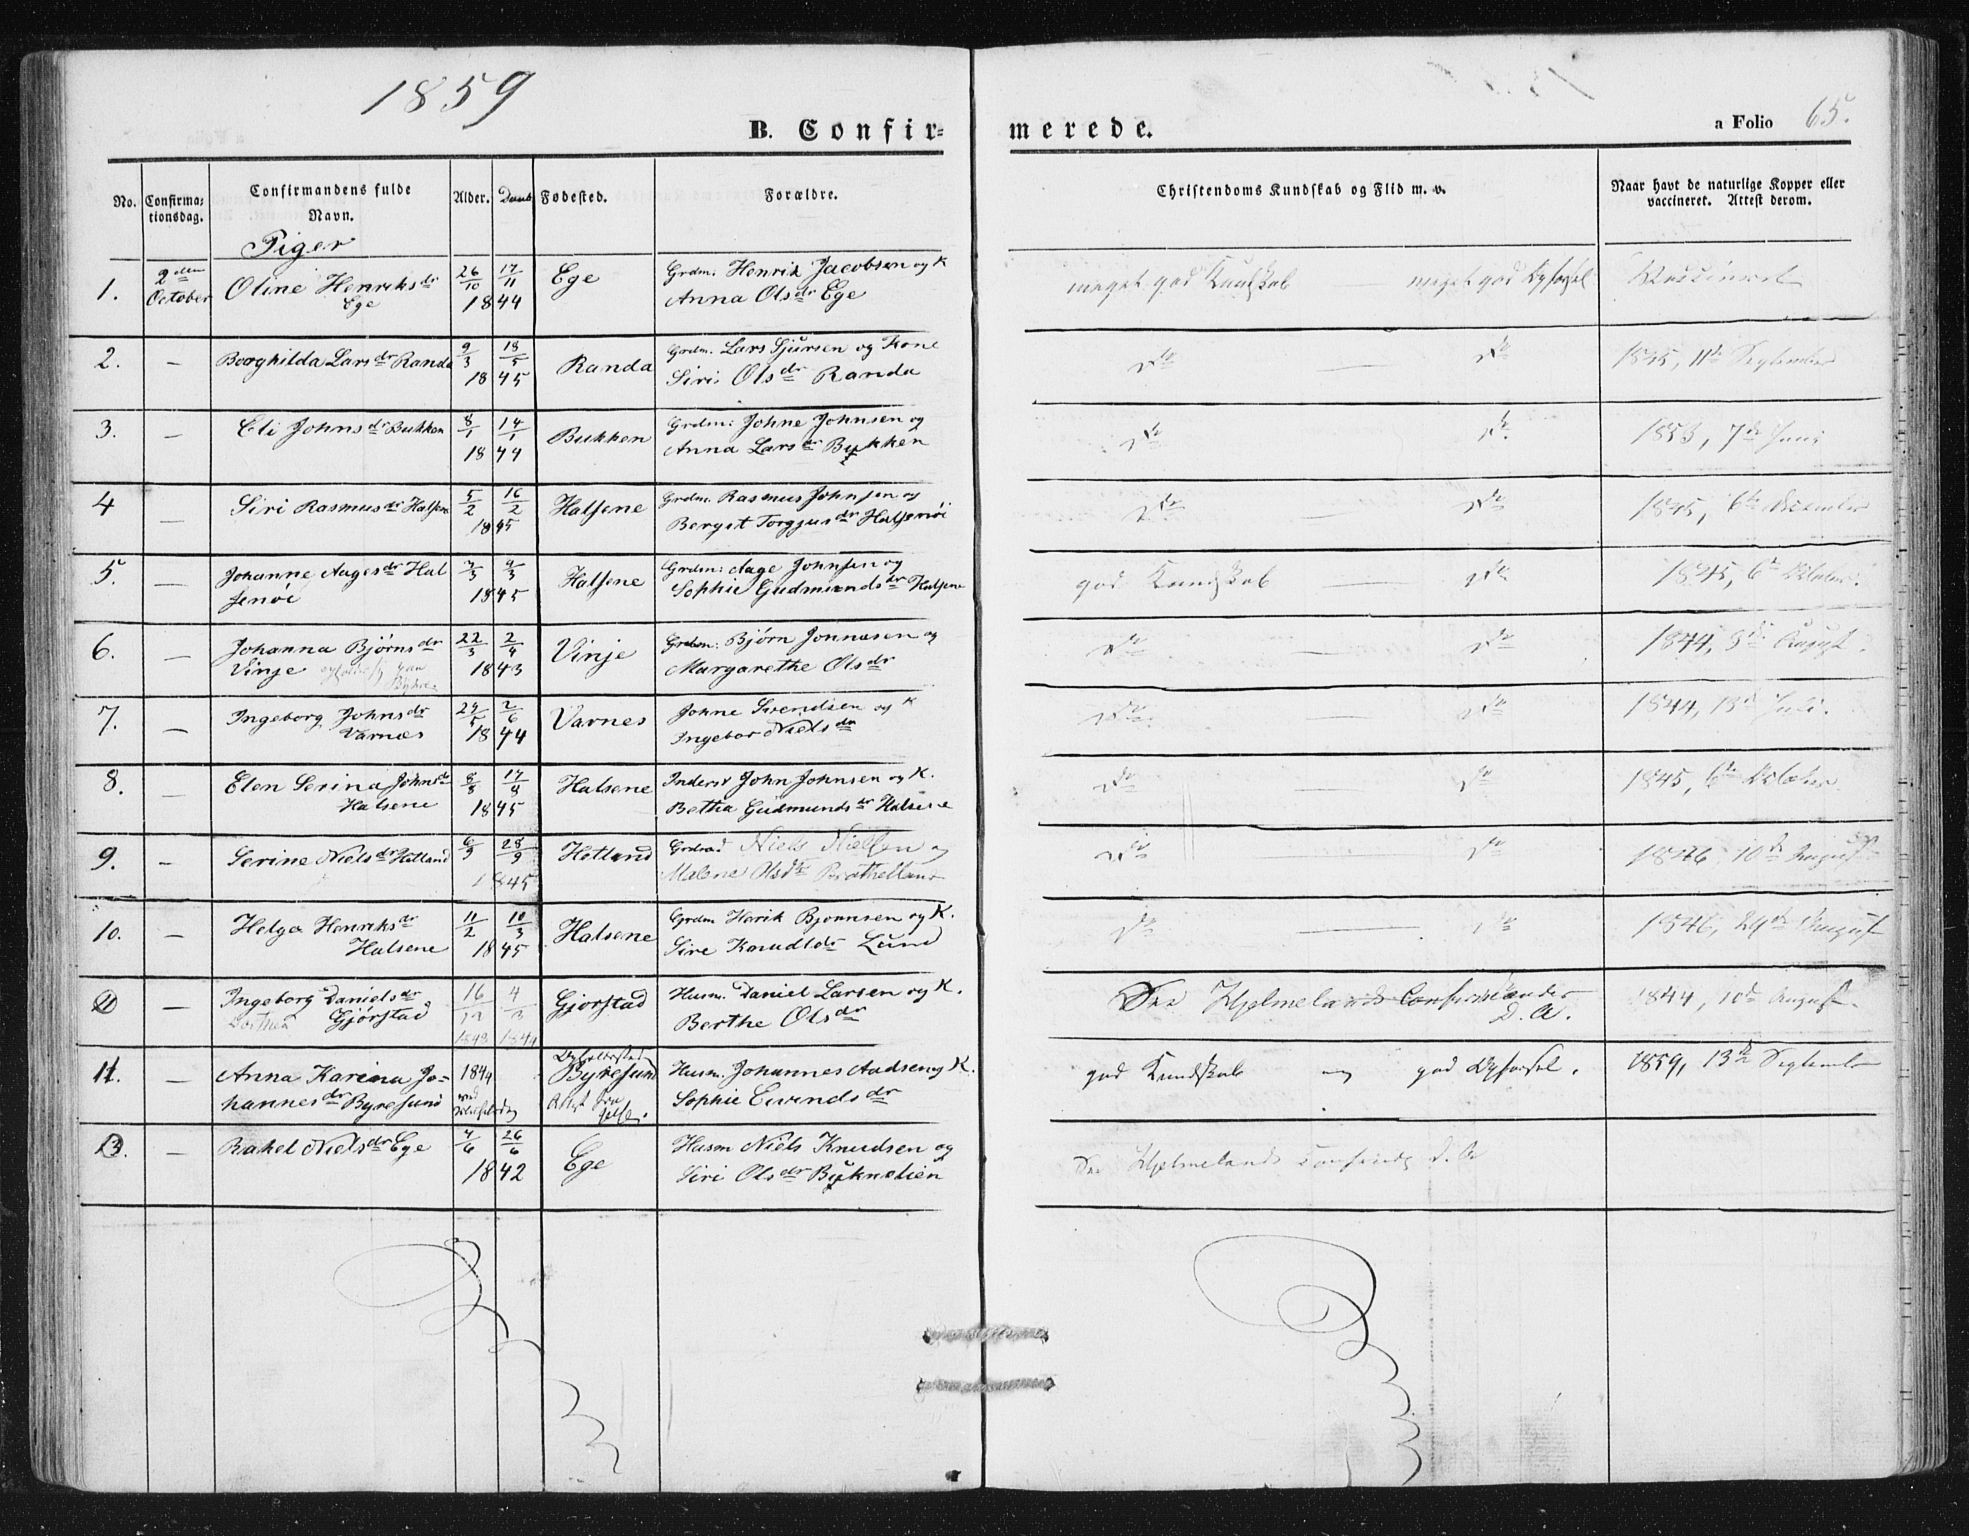 1859
B. Confir-
merede.
a Folio 65.
No.
Confirma-
tionsdag.
Confirmandens fulde
Navn.
Alder.
Daab
Fødested.
Forældre.
Christendoms Kundskab og Flid m. v.
Naar havt de naturlige Kopper eller
vaccineret. Attest derom.
Piger
1. 2den October Oline Henriksdr Ege 26/10 17/11 1844 Ege Grdm. Henrik Jacobsen og K Anna Olsdr Ege meget god Kundskab — meget god Opførsel Vaccineret
2. — Borghilda Larsdr Randa 9/3 18/5 1845 Randa Grdm. Lars Sjursen og Kone Siri Olsdr Randa do — do 1845, 11te September
3. — Eli Johnsdr Bukken 8/1 14/1 1844 Bukken Grdm: Johne Johnsen og Anna Larsdr Bukken do do 1853, 7de Juni
4 — Siri Rasmusdr Halsene 5/2 16/2 1845 Halsene Grdm. Rasmus Johnsen og Bergit Torgjusdr Halsenøi do do 1845, 6te
5. — Johanne Aagesdr Halsenøi 3/3 9/3 1845 Halsene Grdm: Aage Johnsen og Sophie Gudmundsdr Halsene god Kundskab — do 1845, 6te Oktober.
6. — Johanna Bjørnsdr Vinje 22/3 2/4 1843 Vinje Grdm: Bjørn Jonnasen og Margarethe Olsdr do do 1844, August.
7. — Ingeborg Johnsdr Varnes 2/6 1844 Varnes Johne Svendsen og K Ingebor Nielsdr do do 1844, 13de Juli.
8. — Elen Serina Johnsdr Halsene 8/3 17/4 1845 Halsene Inderst John Johnsen og K. Betha Gudmundsdr Halsene do do 1845, 6te Oktober.
9. — Serine Nielsdr Hetland 6/9 28/9 1845 Hetland Niels Nielsen og Malene Olsdtr do do 1846 10de August
10. — Helga Henriksdr Halsene 11/2 10/3 1845 Halsene Grdm Henrik Bjørnsen og K. Sire Knudtdr Lund do — do 1846, 29de August
— Ingeborg Danielsdr Gjørstad 16/12 4/3 1843 1844 Gjørstad Husm. Daniel Larsen og K. Berthe Olsdr See Hjelmelands Confirmander D.A. 1844, 10de August.
11. — Anna Karina Johannesdr Byresund 1844 Opholdssted Byresund Husm. Johannes Aadsen og K. Sophie Eivindsdr god Kundskab og god Opførsel. 1859, 13de September
13. — Rakel Nielsdr Ege 4/6 26/6 1842 Ege Husm Niels Knudsen og Siri Olsdr Bukknelien See Hjelmelands D.A